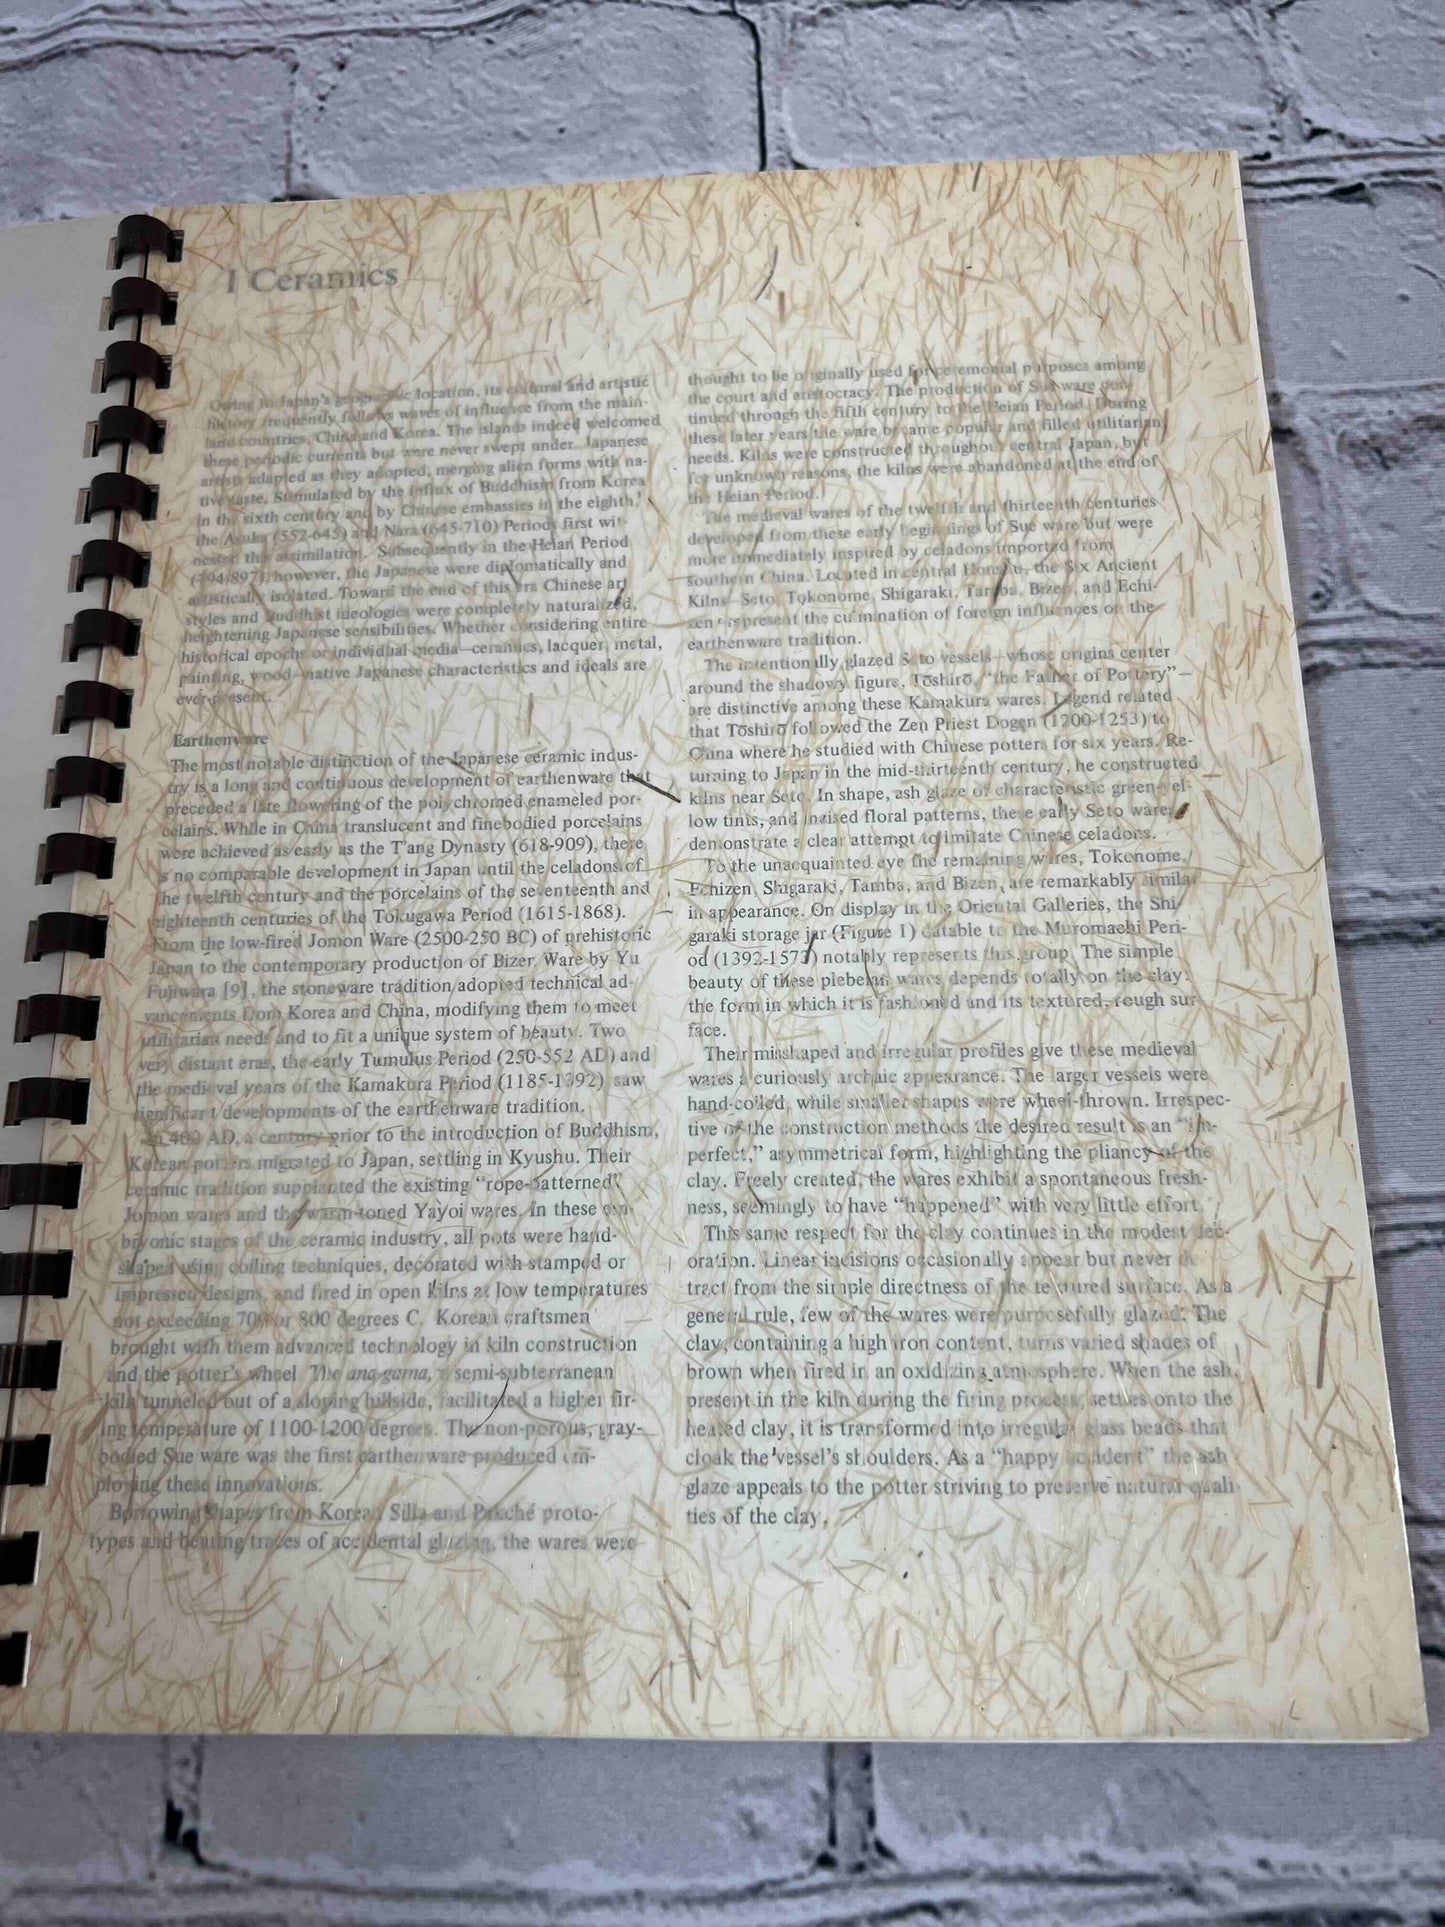 I Ceramics
Owing to Japan's geographic location, its cultural and artistic
history frequently follows waves of influence from the main-
land countries, China and Korea. The islands indeed welcomed
these periodic currents but were never swept under. Japanese
artists adapted as they adopted, merging alien forms with na-
tive taste. Stimulated by the influx of Buddhism from Korea
in the sixth century and by Chinese embassies in the eighth,
the Asuka (552-645) and Nara (645-710) Periods first wit-
nessed this assimilation. Subsequently in the Heian Period
(794-897), however, the Japanese were diplomatically and
artistically isolated. Toward the end of this era Chinese art
styles and Buddhist ideologies were completely naturalized,
heightening Japanese sensibilities. Whether considering entire
historical epochs or individual media—ceramics, lacquer, metal,
painting, wood—native Japanese characteristics and ideals are
ever-present.
Earthenware
The most notable distinction of the Japanese ceramic indus-
try is a long and continuous development of earthenware that
preceded a late flowering of the polychromed enameled por-
celains. While in China translucent and finebodied porcelains
were achieved as early as the T'ang Dynasty (618-909), there
is no comparable development in Japan until the celadons of
the twelfth century and the porcelains of the seventeenth and
eighteenth centuries of the Tokugawa Period (1615-1868).
From the low-fired Jomon Ware (2500-250 BC) of prehistoric
Japan to the contemporary production of Bizen Ware by Yu
Fujiwara [9], the stoneware tradition adopted technical ad-
vancements from Korea and China, modifying them to meet
utilitarian needs and to fit a unique system of beauty. Two
very distant eras, the early Tumulus Period (250-552 AD) and
the medieval years of the Kamakura Period (1185-1392) saw
significant developments of the earthenware tradition.
In 400 AD, a century prior to the introduction of Buddhism,
Korean potters migrated to Japan, settling in Kyushu. Their
ceramic tradition supplanted the existing "rope-patterned"
Jomon wares and the warm-toned Yayoi wares. In these em-
bryonic stages of the ceramic industry, all pots were hand-
shaped using coiling techniques, decorated with stamped or
impressed designs, and fired in open kilns at low temperatures
not exceeding 700 or 800 degrees C. Korean craftsmen
brought with them advanced technology in kiln construction
and the potter's wheel. The ana-gama, a semi-subterranean
kiln tunneled out of a sloping hillside, facilitated a higher fir-
ing temperature of 1100-1200 degrees. The non-porous, gray-
bodied Sue ware was the first earthenware produced em-
ploying these innovations.
Borrowing shapes from Korean Silla and Pakché proto-
types and bearing traces of accidental glazing, the wares were
thought to be originally used for ceremonial purposes among
the court and aristocracy. The production of Sue ware con-
tinued through the fifth century to the Heian Period. During
these later years the ware became popular and filled utilitarian
needs. Kilns were constructed throughout central Japan, but
for unknown reasons, the kilns were abandoned at the end of
the Heian Period.
The medieval wares of the twelfth and thirteenth centuries
developed from these early beginnings of Sue ware but were
more immediately inspired by celadons imported from
Southern China. Located in central Honshu, the Six Ancient
Kilns—Seto, Tokonome, Shigaraki, Tamba, Bizen, and Echi-
zen—represent the culmination of foreign influences on the
earthenware tradition.
The intentionally glazed Seto vessels—whose origins center
around the shadowy figure, Tōshirō, "the Father of Pottery"—
are distinctive among these Kamakura wares. Legend related
that Tōshirō followed the Zen Priest Dogen (1200-1253) to
China where he studied with Chinese potters for six years. Re-
turning to Japan in the mid-thirteenth century, he constructed
kilns near Seto. In shape, ash glaze of characteristic green-yel-
low tints, and incised floral patterns, these early Seto wares
demonstrate a clear attempt to imitate Chinese celadons.
To the unacquainted eye the remaining wares, Tokonome,
Echizen, Shigaraki, Tamba, and Bizen, are remarkably similar
in appearance. On display in the Oriental Galleries, the Shi-
garaki storage jar (Figure 1) datable to the Muromachi Peri-
od (1392-1573) notably represents this group. The simple
beauty of these plebeian wares depends totally on the clay,
the form in which it is fashioned and its textured, rough sur-
face.
Their misshaped and irregular profiles give these medieval
wares a curiously archaic appearance. The larger vessels were
hand-coiled, while smaller shapes were wheel-thrown. Irrespec-
tive of the construction methods the desired result is an "im-
perfect," asymmetrical form, highlighting the pliancy of the
clay. Freely created, the wares exhibit a spontaneous fresh-
ness, seemingly to have "happened" with very little effort.
This same respect for the clay continues in the modest dec-
oration. Linear incisions occasionally appear but never de-
tract from the simple directness of the textured surface. As a
general rule, few of the wares were purposefully glazed. The
clay, containing a high iron content, turns varied shades of
brown when fired in an oxidizing atmosphere. When the ash,
present in the kiln during the firing process, settles onto the
heated clay, it is transformed into irregular glass beads that
cloak the vessel's shoulders. As a "happy accident" the ash
glaze appeals to the potter striving to preserve natural quali-
ties of the clay.